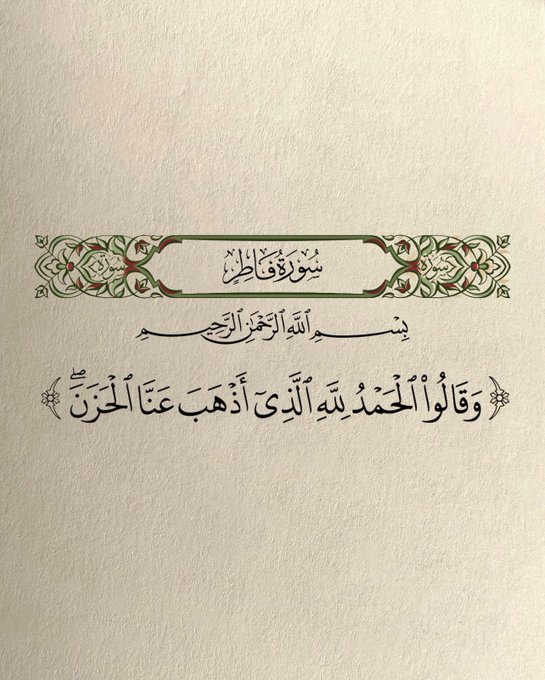 سُورَةُ فَاطِرٍ
سورة
سورة
بِسْمِ ٱللَّهِ ٱلرَّحْمَٰنِ ٱلرَّحِيمِ
﴿ وَقَالُوا۟ ٱلْحَمْدُ لِلَّهِ ٱلَّذِىٓ أَذْهَبَ عَنَّا ٱلْحَزَنَ ۖ ﴾